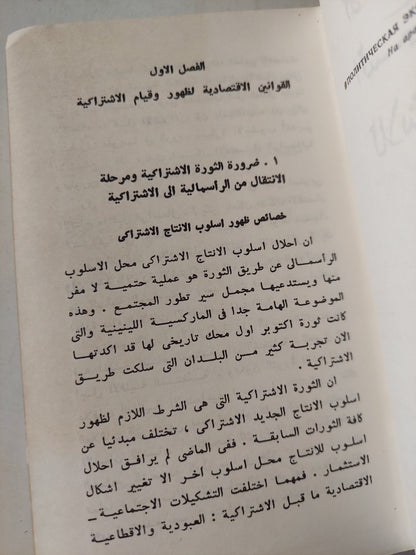 الفصل الاول
القوانين الاقتصادية لظهور وقيام الاشتراكية
١ . ضرورة الثورة الاشتراكية ومرحلة
الانتقال من الرأسمالية الى الاشتراكية
خصائص ظهور اسلوب الانتاج الاشتراكى
ان احلال اسلوب الانتاج الاشتراكى محل الاسلوب
الرأسمالى عن طريق الثورة هو عملية حتمية لا مفر
منها ويستدعيها مجمل سير تطور المجتمع . وهذه
الموضوعة الهامة جدا فى الماركسية اللينينية والتى
كانت ثورة اكتوبر اول محك تاريخى لها قد اكدتها
الان تجربة كثير من البلدان التى سلكت طريق
الاشتراكية .
ان الثورة الاشتراكية التى هى الشرط اللازم لظهور
اسلوب الانتاج الجديد الاشتراكى ، تختلف مبدئيا عن
كافة الثورات السابقة . ففى الماضى لم يرافق احلال
اسلوب للانتاج محل اسلوب اخر الا تغيير اشكال
الاستثمار . فمهما اختلفت التشكيلات الاجتماعية –
الاقتصادية ما قبل الاشتراكية : العبودية والاقطاعية
ПОЛИТИЧЕСКАЯ ЭК
На ара